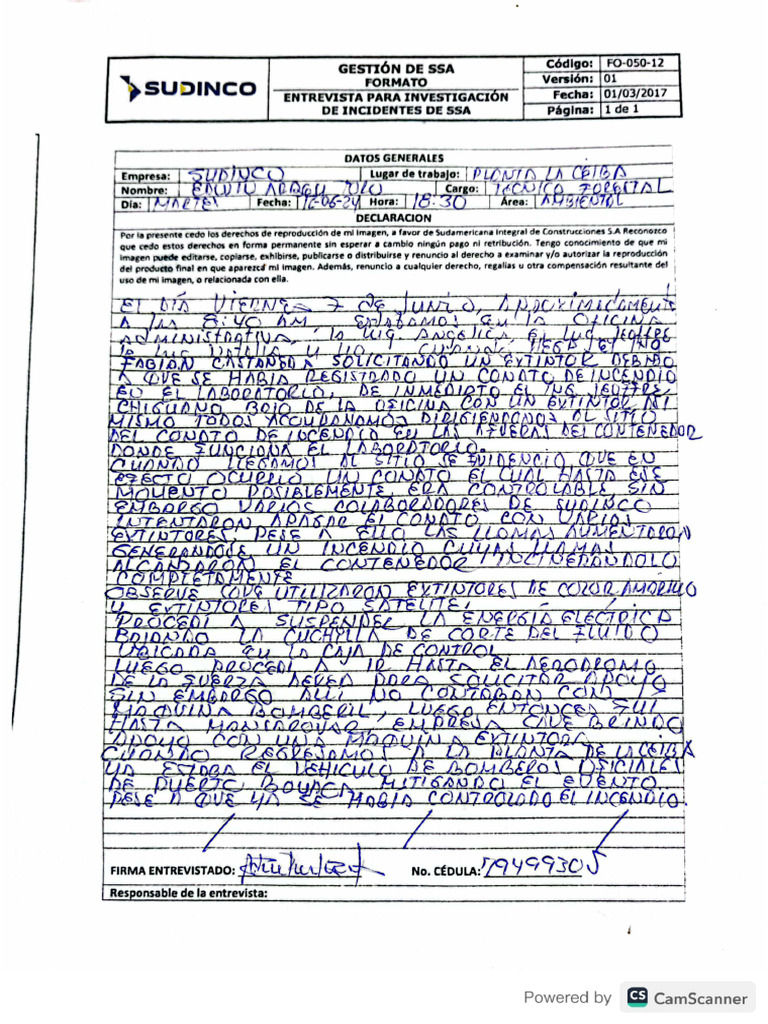 SUDINCO
GESTIÓN DE SSA
FORMATO
ENTREVISTA PARA INVESTIGACIÓN
DE INCIDENTES DE SSA
Código: FO-050-12
Versión: 01
Fecha: 01/03/2017
Página: 1 de 1
DATOS GENERALES
Empresa: SUDINCO Lugar de trabajo: PLANTA LA CEIBA
Nombre: EDWIN Cargo: TECNICO FORESTAL
Día: MARTES Fecha: Hora: 18:30 Área: AMBIENTAL
DECLARACION
Por la presente cedo los derechos de reproducción de mi imagen, a favor de Sudamericana Integral de Construcciones S.A Reconozco
que cedo estos derechos en forma permanente sin esperar a cambio ningún pago ni retribución. Tengo conocimiento de que mi
imagen puede editarse, copiarse, exhibirse, publicarse o distribuirse y renuncio al derecho a examinar y/o autorizar la reproducción
del producto final en que aparezca mi imagen. Además, renuncio a cualquier derecho, regalías u otra compensación resultante del
uso de mi imagen, o relacionada con ella.
EL DÍA VIERNES 7 de JUNIO, APROXIMADAMENTE
A las 8:40 AM, ESTABAMOS en la OFICINA
ADMINISTRATIVA, la ING ANGELICA, el ING
la ING NATALIA y llego el ING
FABIAN CASTANEDA SOLICITANDO UN EXTINTOR DEBIDO
A QUE SE HABIA REGISTRADO UN CONATO DE INCENDIO
EN EL LABORATORIO, DE INMEDIATO EL ING
CHIGUANO BAJO DE LA OFICINA CON UN EXTINTOR ASI
MISMO TODOS ACOMPAÑAMOS DIRIGIENDONOS AL SITIO
DEL CONATO DE INCENDIO EN LAS AFUERAS DEL CONTENEDOR
DONDE FUNCIONA EL LABORATORIO.
CUANDO LLEGAMOS AL SITIO SE EVIDENCIO QUE EN
EFECTO OCURRIO UN CONATO EL CUAL HASTA ESE
MOMENTO POSIBLEMENTE, ERA CONTROLABLE SIN
EMBARGO VARIOS COLABORADORES DE SUDINCO
INTENTARON APAGAR EL CONATO CON VARIOS
EXTINTORES, PESE A ELLO LAS LLAMAS AUMENTARON
GENERANDOSE UN INCENDIO CUYAS LLAMAS
ALCANZARON EL CONTENEDOR INCINERANDOLO
COMPLETAMENTE
OBSERVE QUE UTILIZARON EXTINTORES DE COLOR AMARILLO
Y EXTINTORES TIPO SATELITE,
PROCEDI A SUSPENDER LA ENERGIA ELECTRICA
BAJANDO LA CUCHILLA DE CORTE DEL FLUIDO
UBICADA EN LA CAJA DE CONTROL
LUEGO PROCEDI A IR HASTA EL AERODROMO
DE LA FUERZA AEREA PARA SOLICITAR APOYO
SIN EMBARGO ALLI NO CONTABAN CON LA
MAQUINA BOMBERIL, LUEGO ENTONCES FUI
HASTA MANSAROVAR, EMPRESA QUE BRINDO
APOYO CON UNA MAQUINA EXTINTORA.
CUANDO REGRESAMOS A LA PLANTA DE LA CEIBA
YA ESTABA EL VEHICULO DE BOMBEROS OFICIALES
DE PUERTO BOYACA MITIGANDO EL EVENTO
PESE A QUE YA SE HABIA CONTROLADO EL INCENDIO.
FIRMA ENTREVISTADO: No. CÉDULA: 79499305
Responsable de la entrevista:
Powered by CS CamScanner